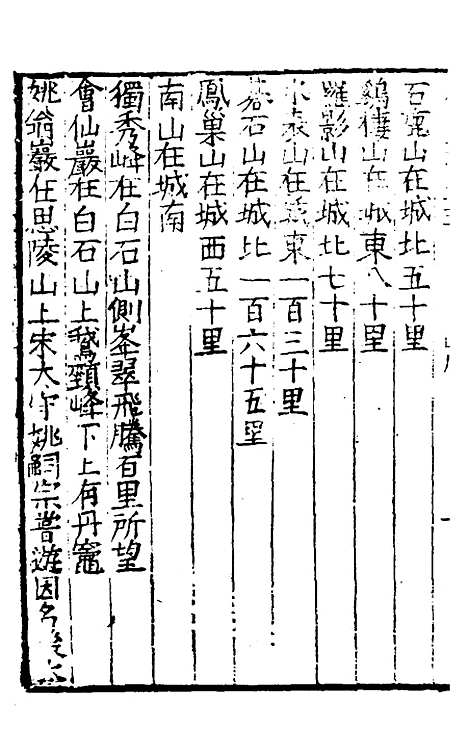 石鹿山在城北五十里
鷄棲山在城東八十里
羅影山在城北七十里
山在 東一百三十里
石山在城北一百六十五里
鳳巢山在城西五十里
南山在城南
獨秀峰在白石山側峯翠飛騰百里所望
會仙巖在白石山上鵞頸峰下上有丹竈
姚翁巖在思陵山上宋太守姚嗣宗嘗遊因名